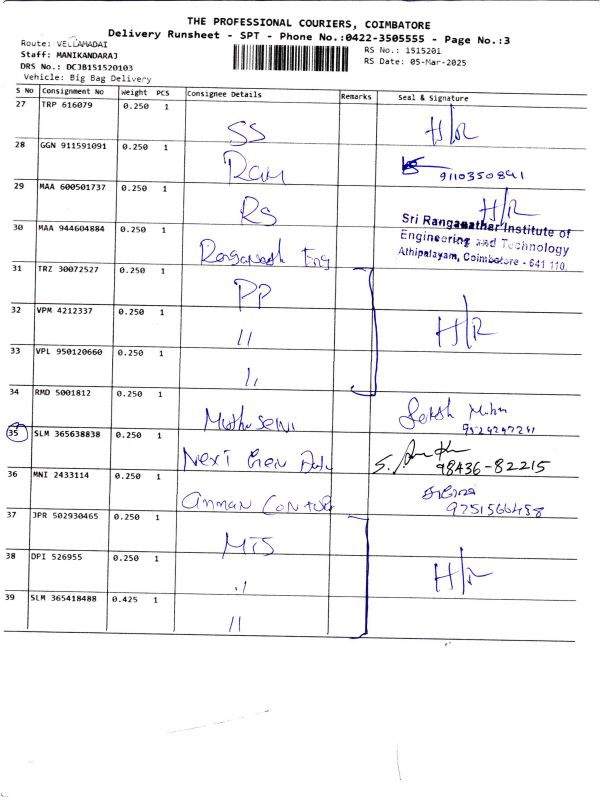 THE PROFESSIONAL COURIERS, COIMBATORE
Delivery Runsheet - SPT - Phone No.:0422-3505555 - Page No.:3
Route: VELLAMADAI
RS No.: 1515201
Staff: MANIKANDARAJ
RS Date: 05-Mar-2025
DRS No.: DCJB151520103
Vehicle: Big Bag Delivery
S No Consignment No Weight PCS Consignee Details Remarks Seal & Signature
27 TRP 616079 0.250 1 SS H/R
28 GGN 911591091 0.250 1 Ram 9110350841
29 MAA 600501737 0.250 1 RS H/R
30 MAA 944604884 0.250 1 Ranganath Eng
Sri Ranganathar Institute of
Engineering and Technology
Athipalayam, Coimbatore - 641 110.
31 TRZ 30072527 0.250 1 PP
32 VPM 4212337 0.250 1 〃 H/R
33 VPL 950120660 0.250 1 〃
34 RMD 5001812 0.250 1
35 SLM 365638838 0.250 1 Next Gen 98436-82215
36 MNI 2433114 0.250 1 amman 9751566458
37 JPR 502930465 0.250 1 MTS
38 DPI 526955 0.250 1 〃 H/R
39 SLM 365418488 0.425 1 〃